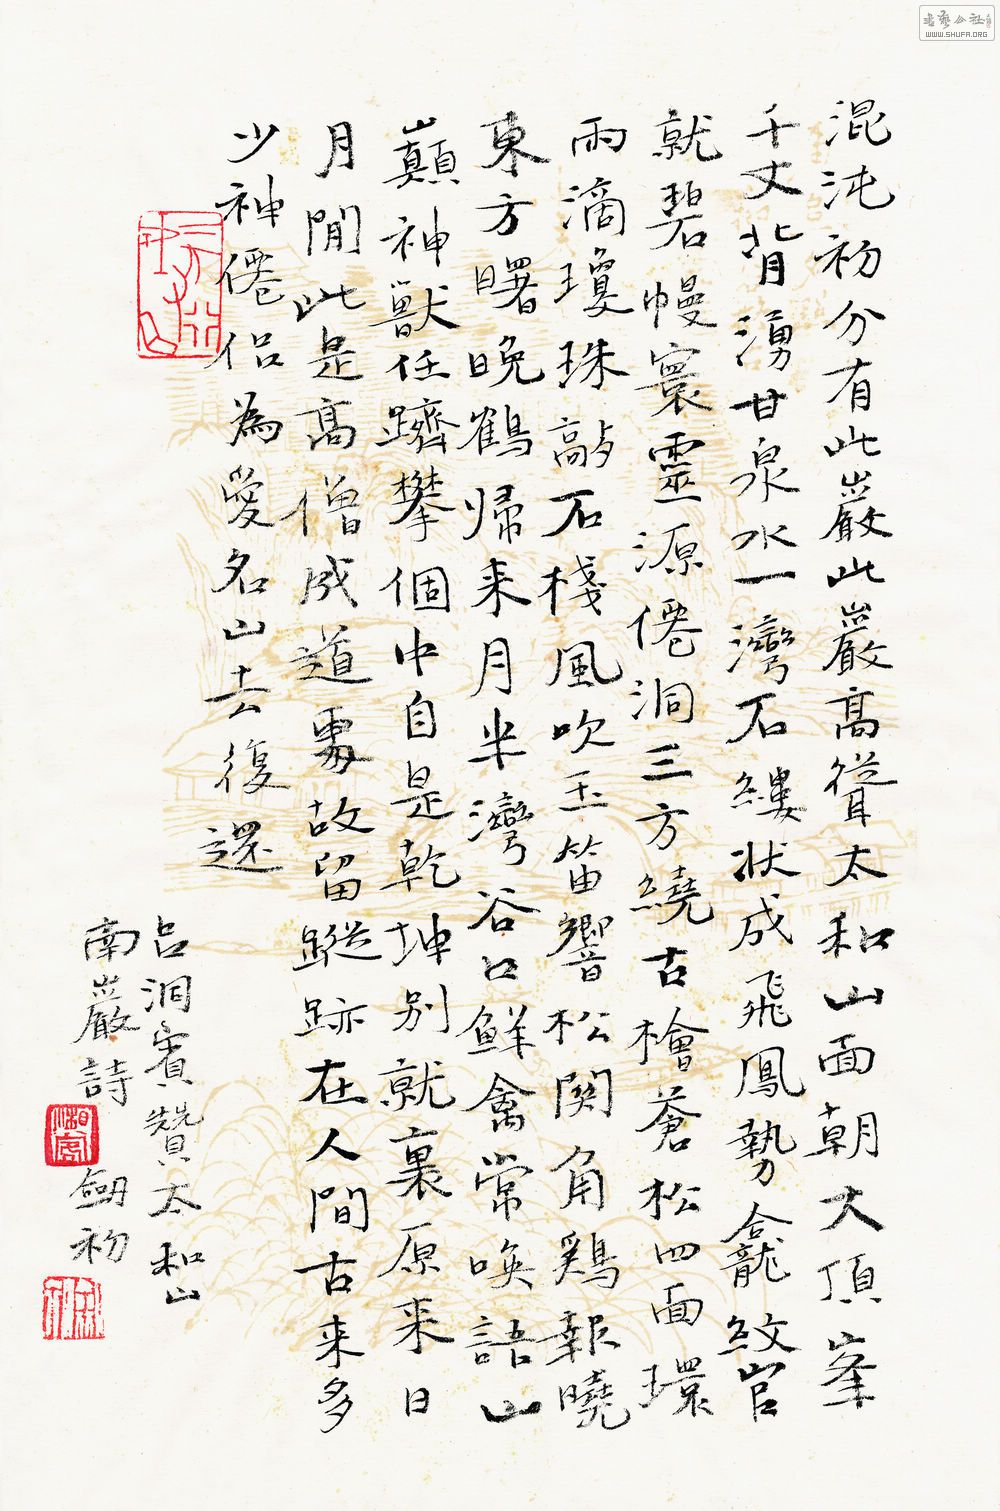 混沌初分有此巖此巖高聳太和山面朝大頂峯
千丈背湧甘泉水一灣石縷狀成飛鳳勢龕紋官
就碧幔寰靈源僊洞三方繞古檜蒼松四面環
雨滴瓊珠敲石棧風吹玉笛響松關角鷄報曉
東方曙晚鶴歸来月半灣谷口鮮禽常喚語山
巔神獸任躋攀個中自是乾坤别就裏原来日
月閒此是高僧成道處故留蹤跡在人間古来多
少神僊侣為愛名山去復還
吕洞賓贊太和山
南巖詩
劒初
书艺公社
WWW.SHUFA.ORG